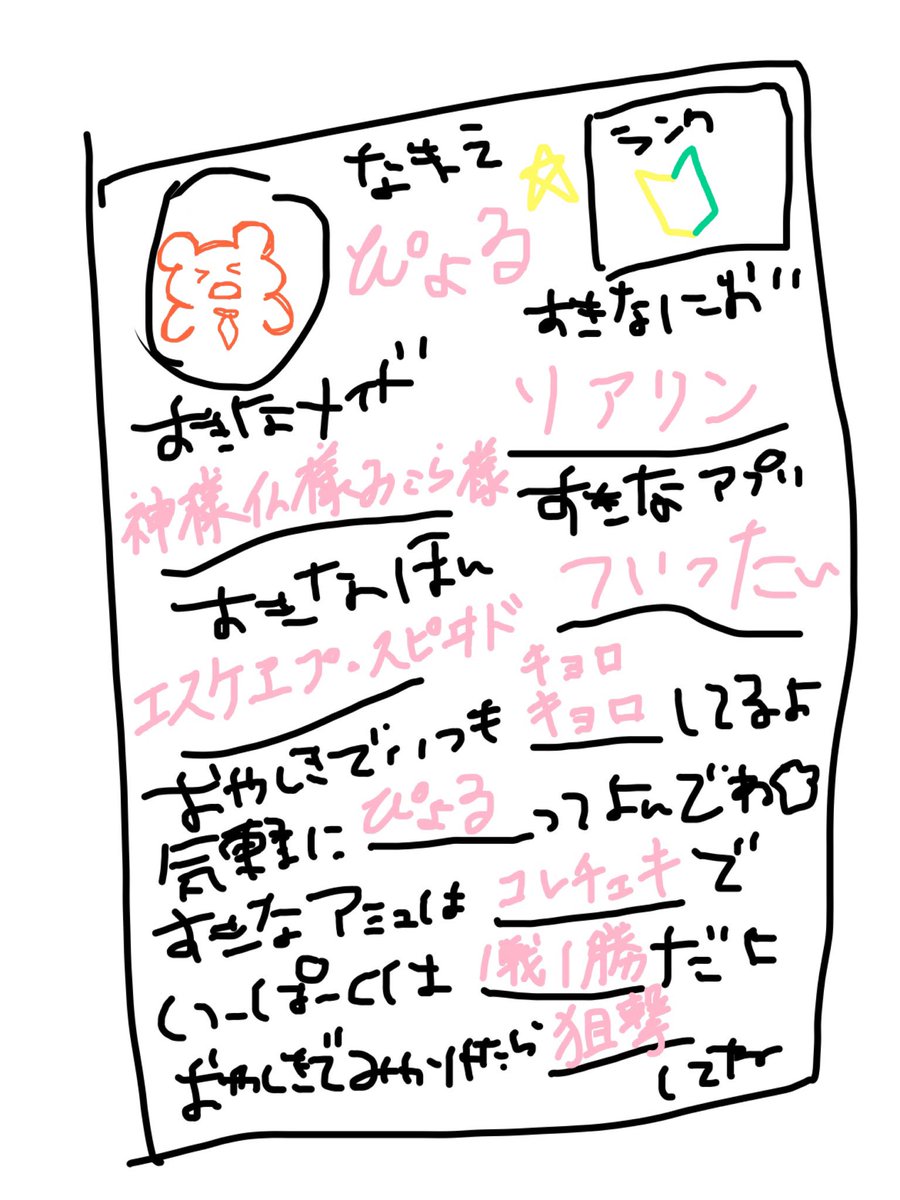 なまえ
ぴょる
ランク
すきなにおい
リアリン
すきなメイド
神様仏様みこら様
すきなアプリ
ついったぃ
すきなほん
エスケヱプ・スピヰド
おやしきでいつもキョロキョロしてるよ
気軽にぴょるってよんでね
すきなアミュはコレチェキで
いっーぱーくは1戦1勝だに
おやしきでみかけたら狙撃してね